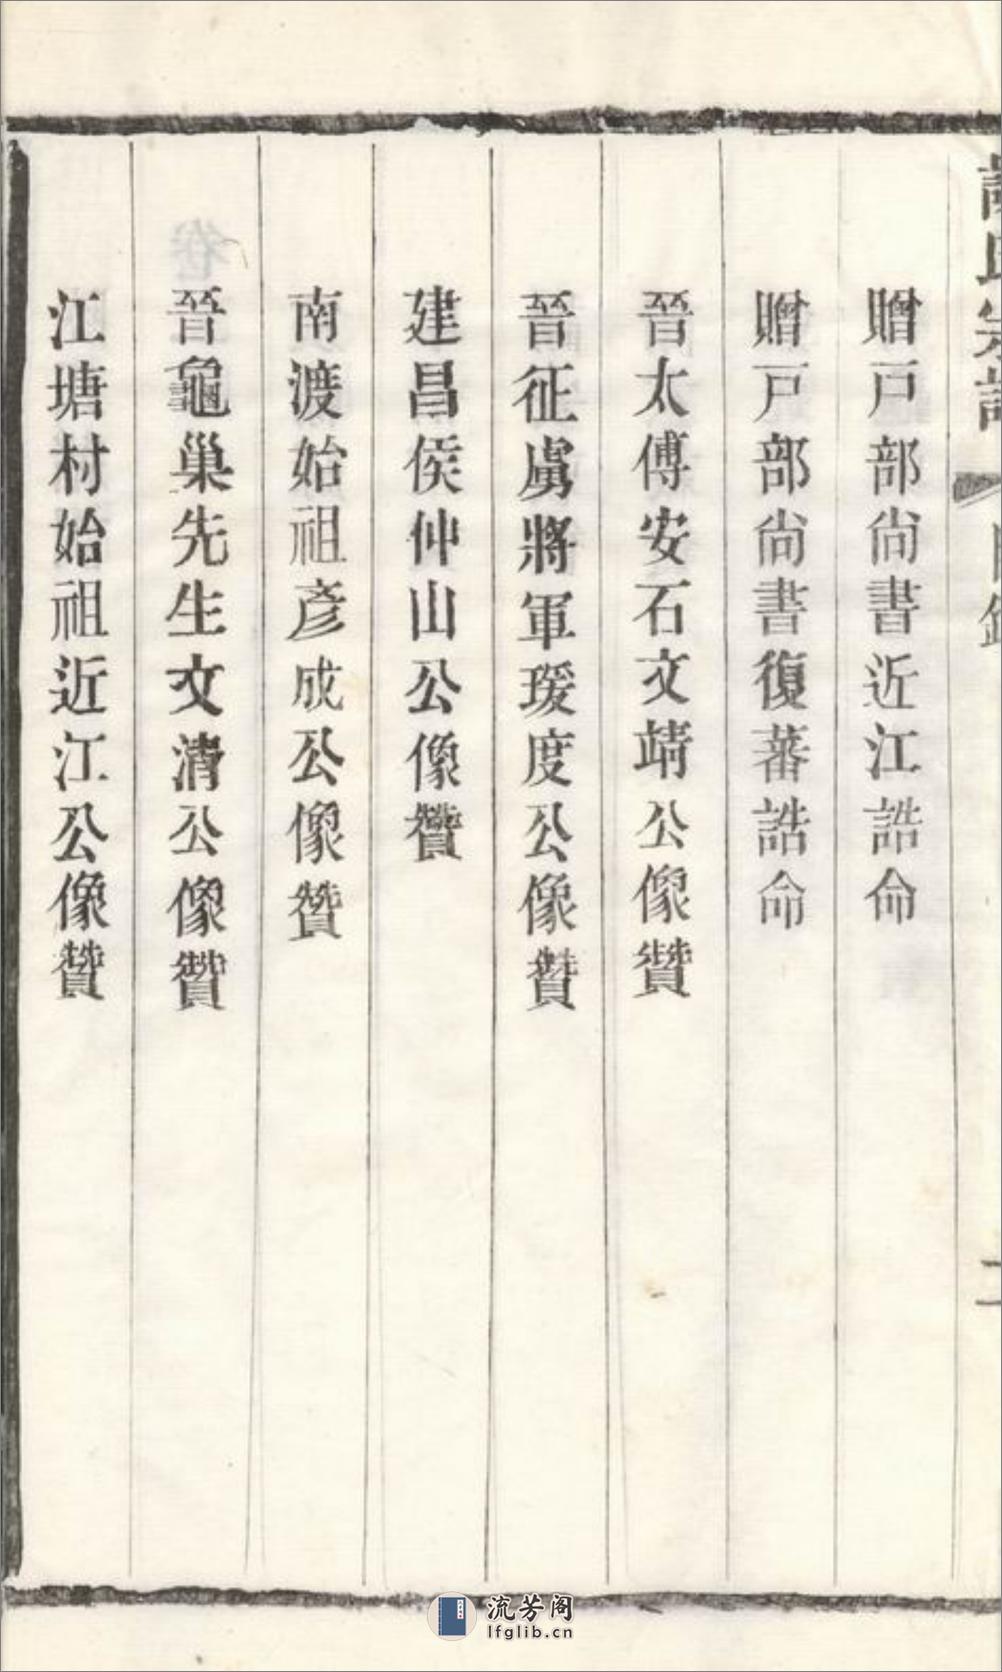 氏宗譜
目錄
二
贈戸部尙書近江誥命
贈戸部尙書復蕃誥命
晉太傅安石文靖公像贊
晉征虜將軍瑗度公像贊
建昌侯仲山公像贊
南渡始祖彦成公像贊
晉龜巢先生文清公像贊
江塘村始祖近江公像贊
流芳阁
lfglib.cn